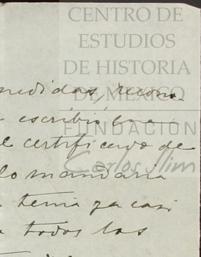 CENTRO DE
ESTUDIOS
DE HISTORIA
DE MÉXICO
FUNDACIÓN
Carlos Slim
medidas,
escribió
el certificado de
lo mandaría
tenía ya casi
a todos los